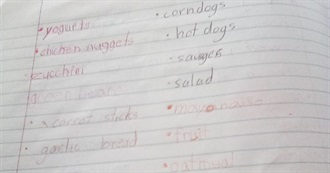 yogurts
chichen nuggets
zucchini
green beans
carrot sticks
garlic bread
corndogs
hot dogs
sauges
salad
mayonaise
fruit
oatmeal